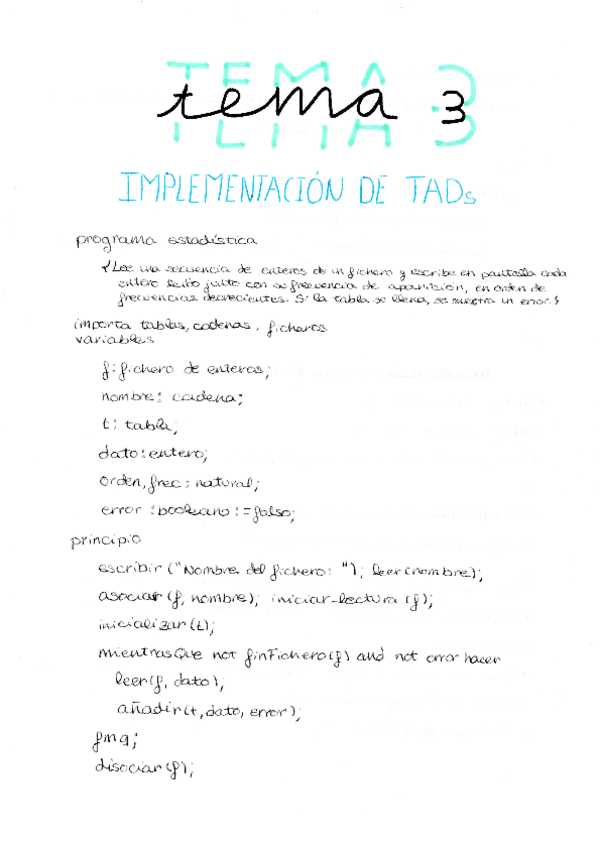 TEMA 3
tema 3
IMPLEMENTACIÓN DE TADs
programa estadística
{Lee una secuencia de enteros de un fichero y escribe en pantalla cada
entero leído junto con su frecuencia de aparición, en orden de
frecuencias decrecientes. Si la tabla se llena, se muestra un error.}
importa tablas, cadenas, ficheros
variables
f: fichero de enteros;
nombre: cadena;
t: tabla;
dato: entero;
orden, frec: natural;
error: booleano := falso;
principio
escribir ("Nombre del fichero: "); leer(nombre);
asociar (f, nombre); iniciar_lectura (f);
inicializar (t);
mientrasQue not finFichero(f) and not error hacer
leer(f, dato);
añadir(t, dato, error);
fmq;
disociar (f);